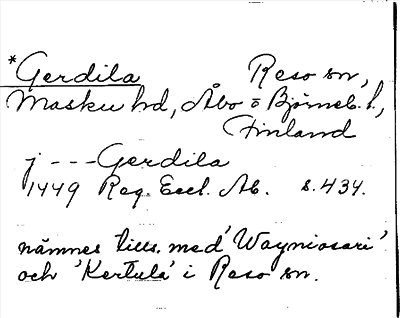 *Gerdila Reso sn,
Masku hd, Åbo o Björneb. l,
Finland
j --- Gerdila
1449 Reg. Eccl. Ab. s. 434.
nämnes tills. med 'Wayniosari'
och 'Kertula' i Reso sn.